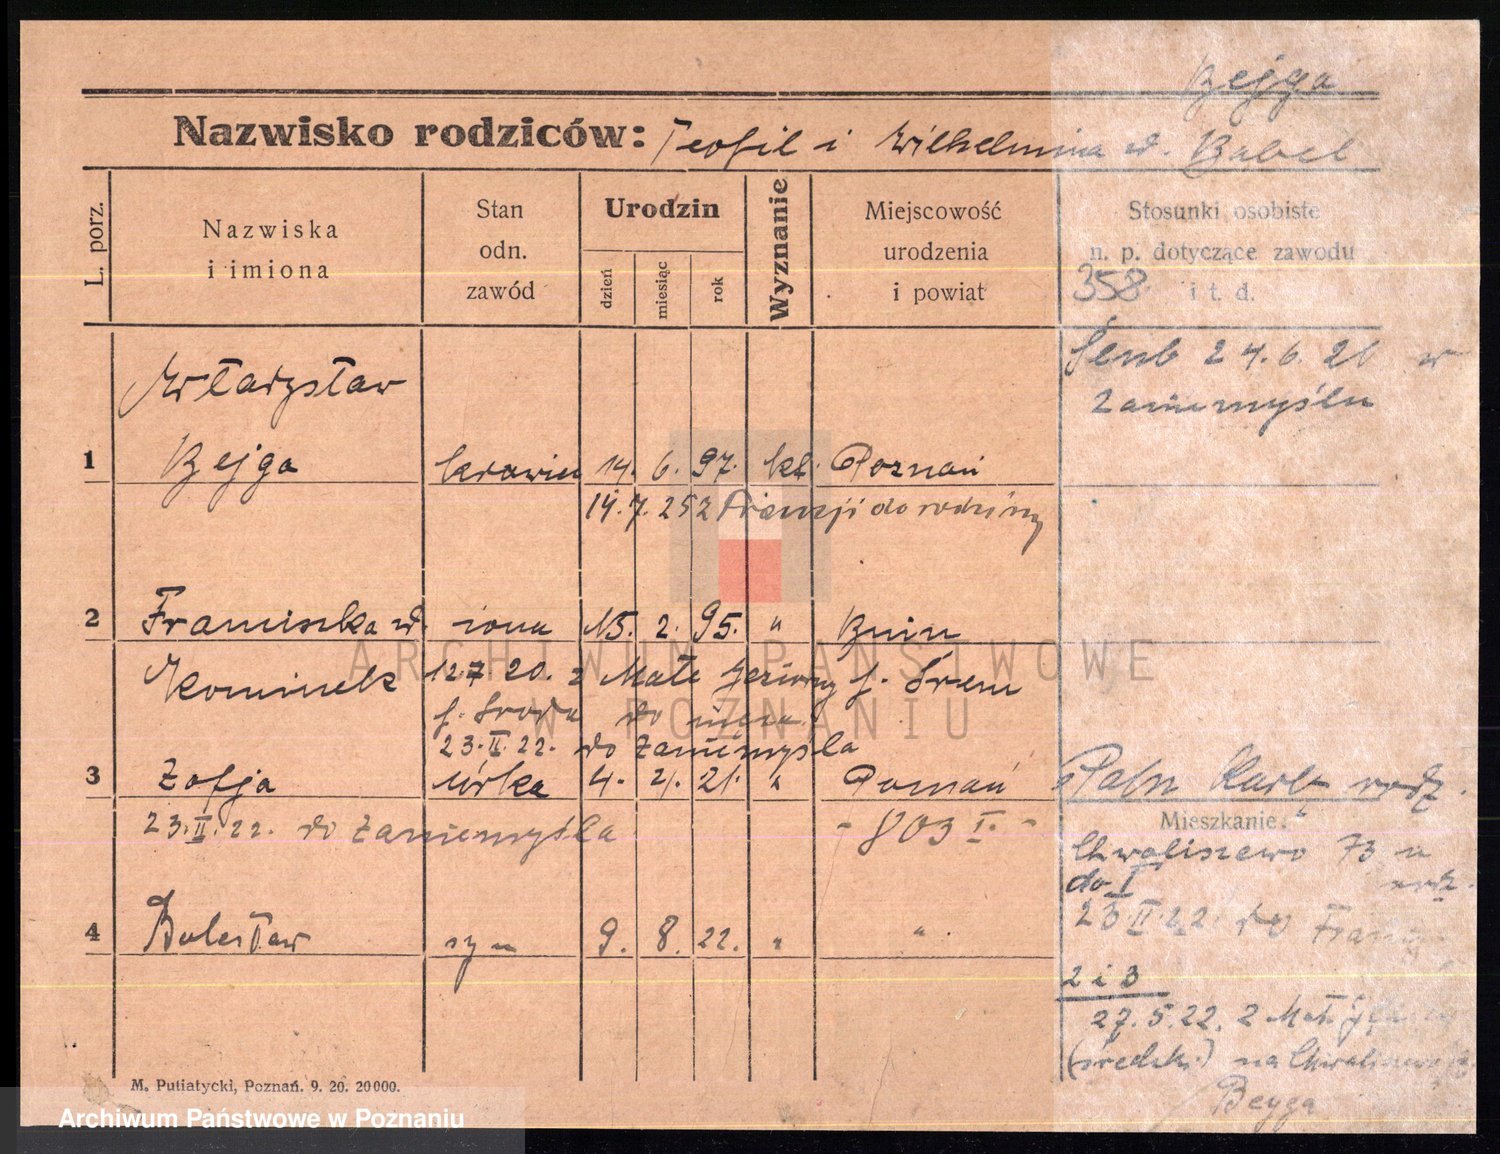 Bejga
Nazwisko rodziców: Teofil i Wilhelmina d. Babel
L. porz.
Nazwiska
i imiona
Stan
odn.
zawód
Urodzin
dzień
miesiąc
rok
Wyznanie
Miejscowość
urodzenia
i powiat
Stosunki osobiste
n. p. dotyczące zawodu
358 i t. d.
Ślub 24.6.20 w
Zaniemyślu
Władysław
1 Bejga krawiec 14. 6. 97. kt. Poznań
14.7.25 z Francji do rodziny
2 Franciszka d. żona 15. 2. 95. " Bnin
Kominek 12.7 20. z Małe Jeziory p. Śrem
p. Środa do męża
23.II.22. do Zaniemyśla
3 Zofja córka 4. 4. 21. " Poznań
23.II.22. do Zaniemyśla - 803 I. -
Patrz kartę rodz.
Mieszkanie:
Chwaliszewo 73 u
do I rodz.
23 II.22. do
4 Bolesław syn 9. 8. 22. " " .
2 i 3
27.5.22. z
(średzk.) na Chwaliszewo
Beyga
M. Putiatycki, Poznań. 9. 20. 20000.
ARCHIWUM PAŃSTWOWE
W POZNANIU
Archiwum Państwowe w Poznaniu